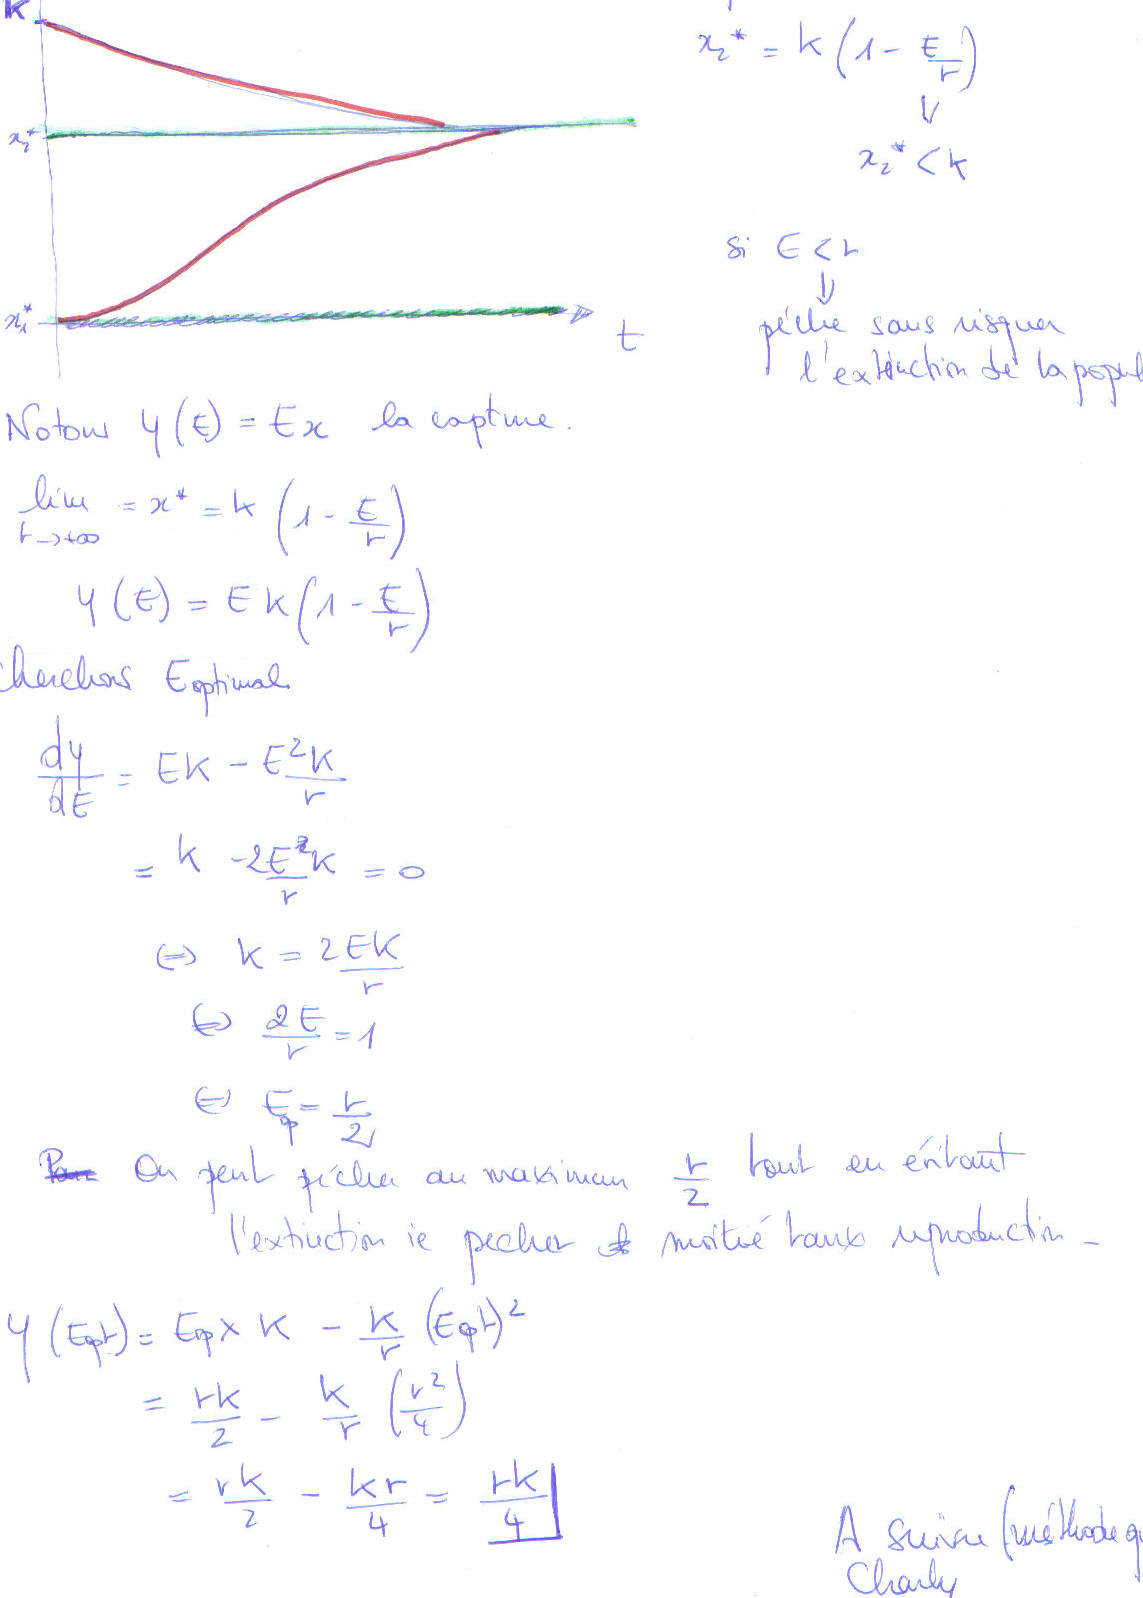 K
x₂*
x₁*
t
x₂* = k (1 - E/r)
x₂* < k
si E < r
pêche sans risquer
l'extinction de la popul
Notons Y(E) = Ex la capture.
lim = x* = k (1 - E/r)
t→+∞
Y(E) = EK (1 - E/r)
cherchons Eoptimal
dy/dE = EK - E²K/r
= k - 2E²K/r = 0
⇔ k = 2EK/r
⇔ 2E/r = 1
⇔ Eop = r/2
On peut pêcher au maximum r/2 tout en évitant
l'extinction ie pecher moitié taux reproduction -
Y(Eopt) = Eop × K - K/r (Eopt)²
= rk/2 - k/r (r²/4)
= rk/2 - kr/4 = rk/4
A suivre (méthode q
Charly